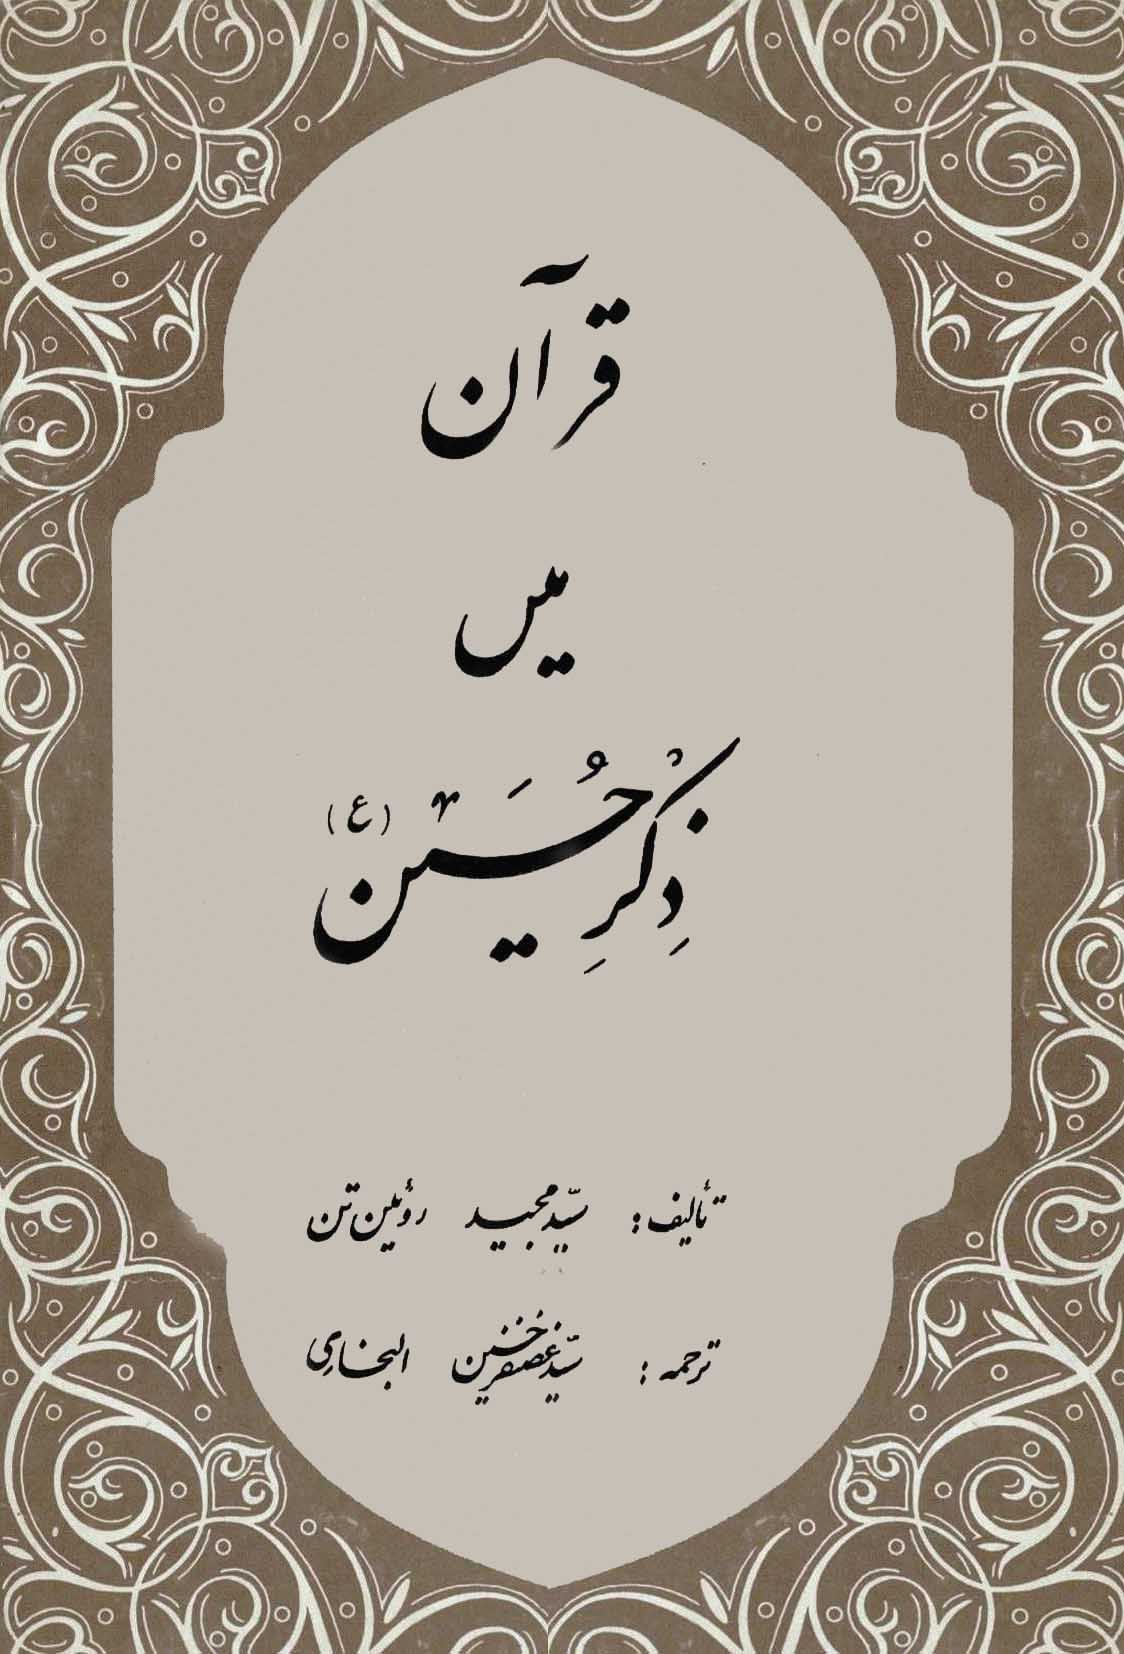 قرآن
میں
ذِکرِ حُسَین (ع)
تألیف: سیّد مجید روئین تن
ترجمہ: سیّد غضنفر حسین البخاری